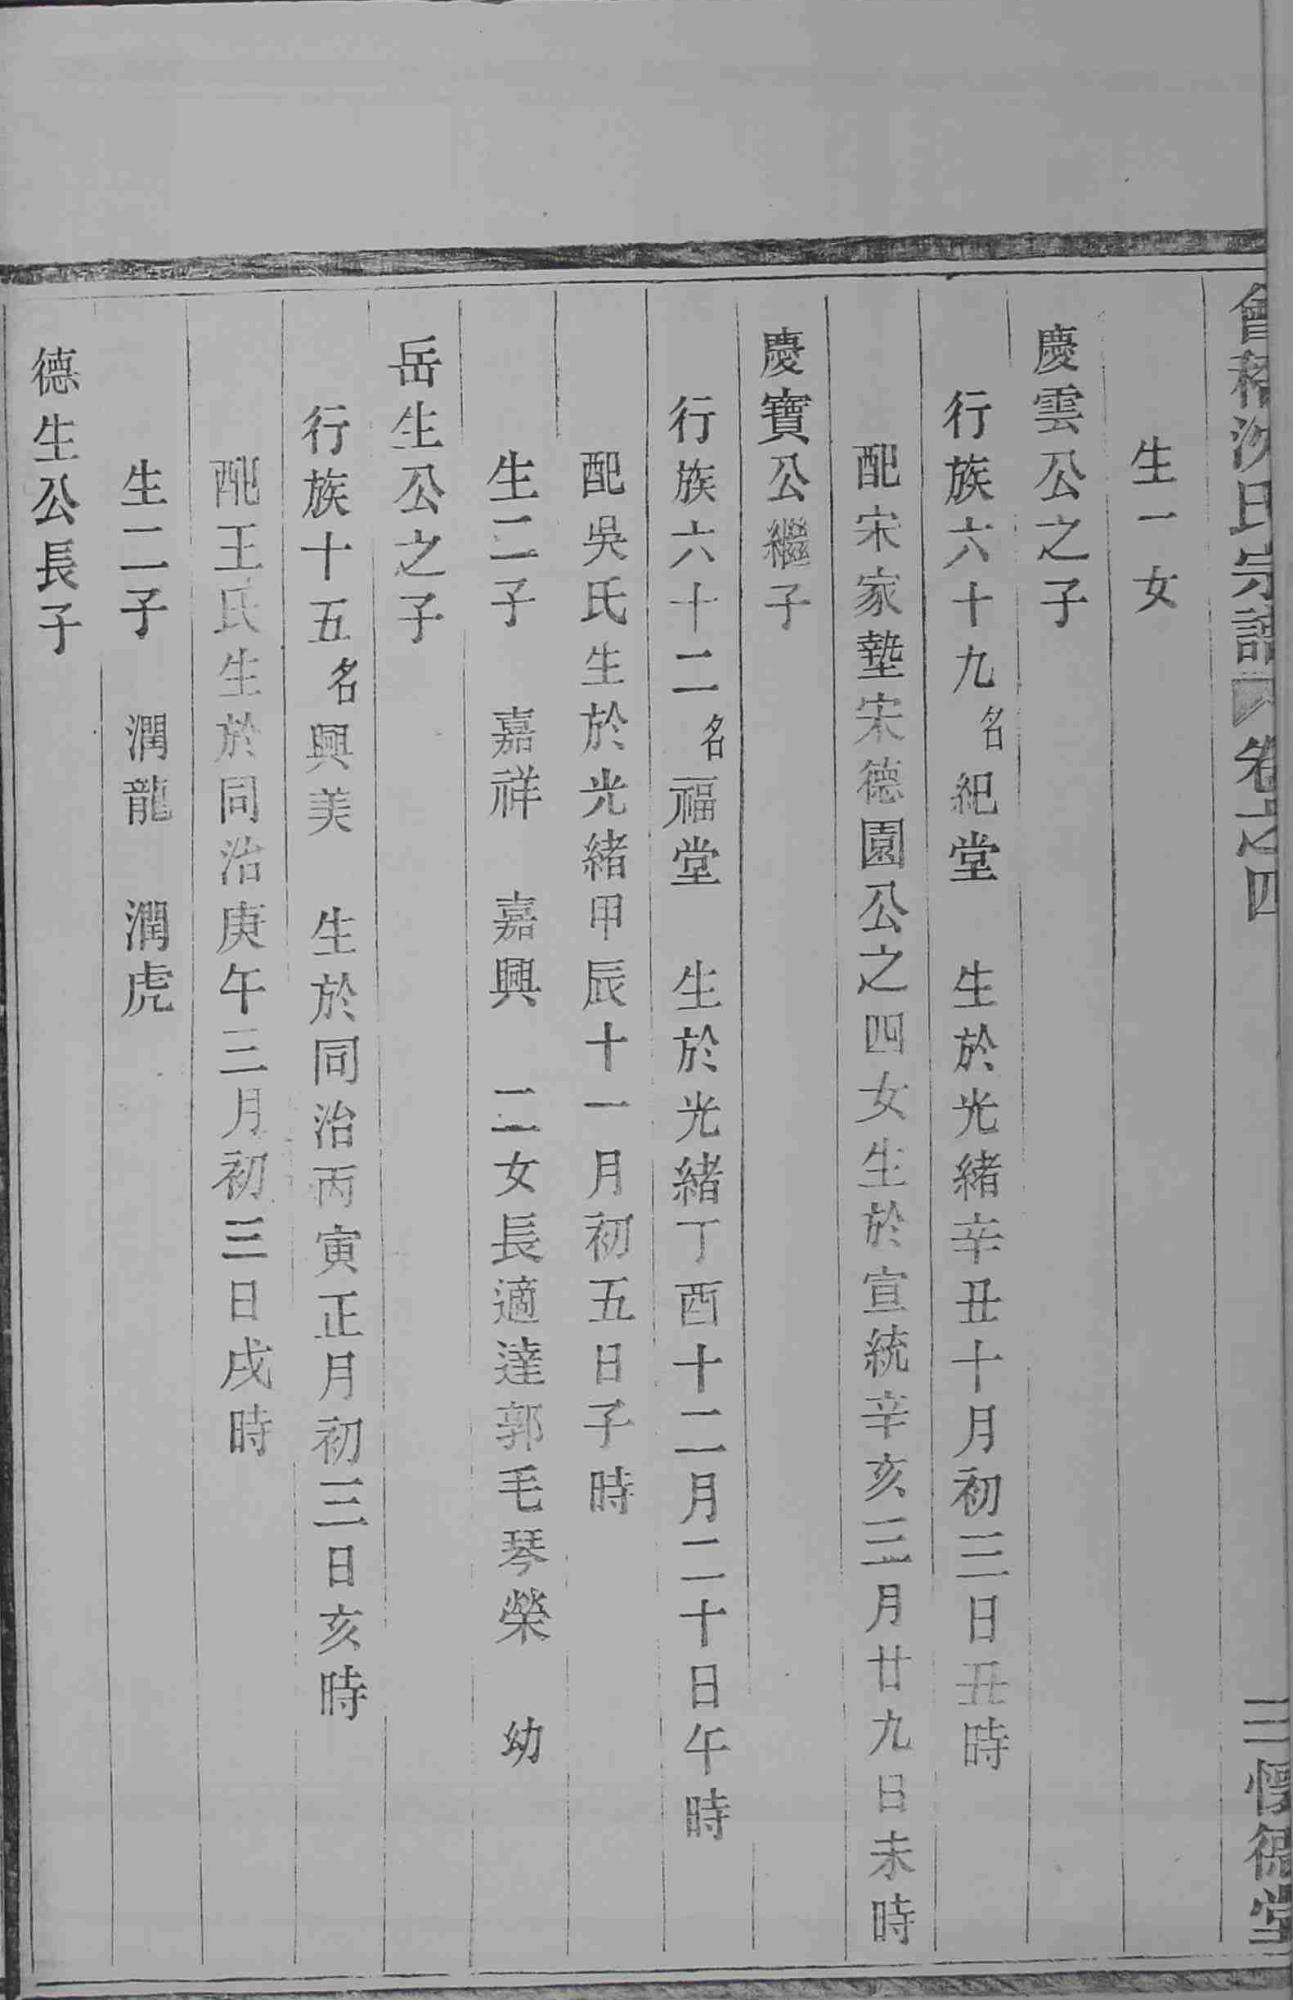 會稽沈氏宗譜 卷之四 三 懷德堂
生一女
慶雲公之子
行族六十九名紀堂 生於光緒辛丑十月初三日丑時
配宋家墊宋德園公之四女生於宣統辛亥三月廿九日未時
慶寶公繼子
行族六十二名福堂 生於光緒丁酉十二月二十日午時
配吳氏生於光緒甲辰十一月初五日子時
生二子 嘉祥 嘉興 二女長適達郭毛琴榮 幼
岳生公之子
行族十五名興美 生於同治丙寅正月初三日亥時
配王氏生於同治庚午三月初三日戌時
生二子 潤龍 潤虎
德生公長子